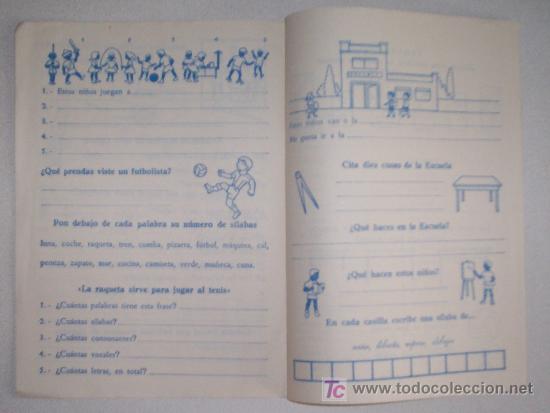 1 2 3 4 5
1.- Estos niños juegan a
2.-
3.-
4.-
5.-
¿Qué prendas viste un futbolista?
Pon debajo de cada palabra su número de sílabas
luna, coche, raqueta, tren, comba, pizarra, fútbol, máquina, cal,
peonza, zapato, mar, cocina, camiseta, verde, muñeca, cuna.
«La raqueta sirve para jugar al tenis»
1.- ¿Cuántas palabras tiene esta frase?
2.- ¿Cuántas sílabas?
3.- ¿Cuántas consonantes?
4.- ¿Cuántas vocales?
5.- ¿Cuántas letras, en total?
Estos niños van a la
Me gusta ir a la
Cita diez cosas de la Escuela
¿Qué haces en la Escuela?
¿Qué hacen estos niños?
En cada casilla escribe una sílaba de...
todocoleccion
www.todocoleccion.net